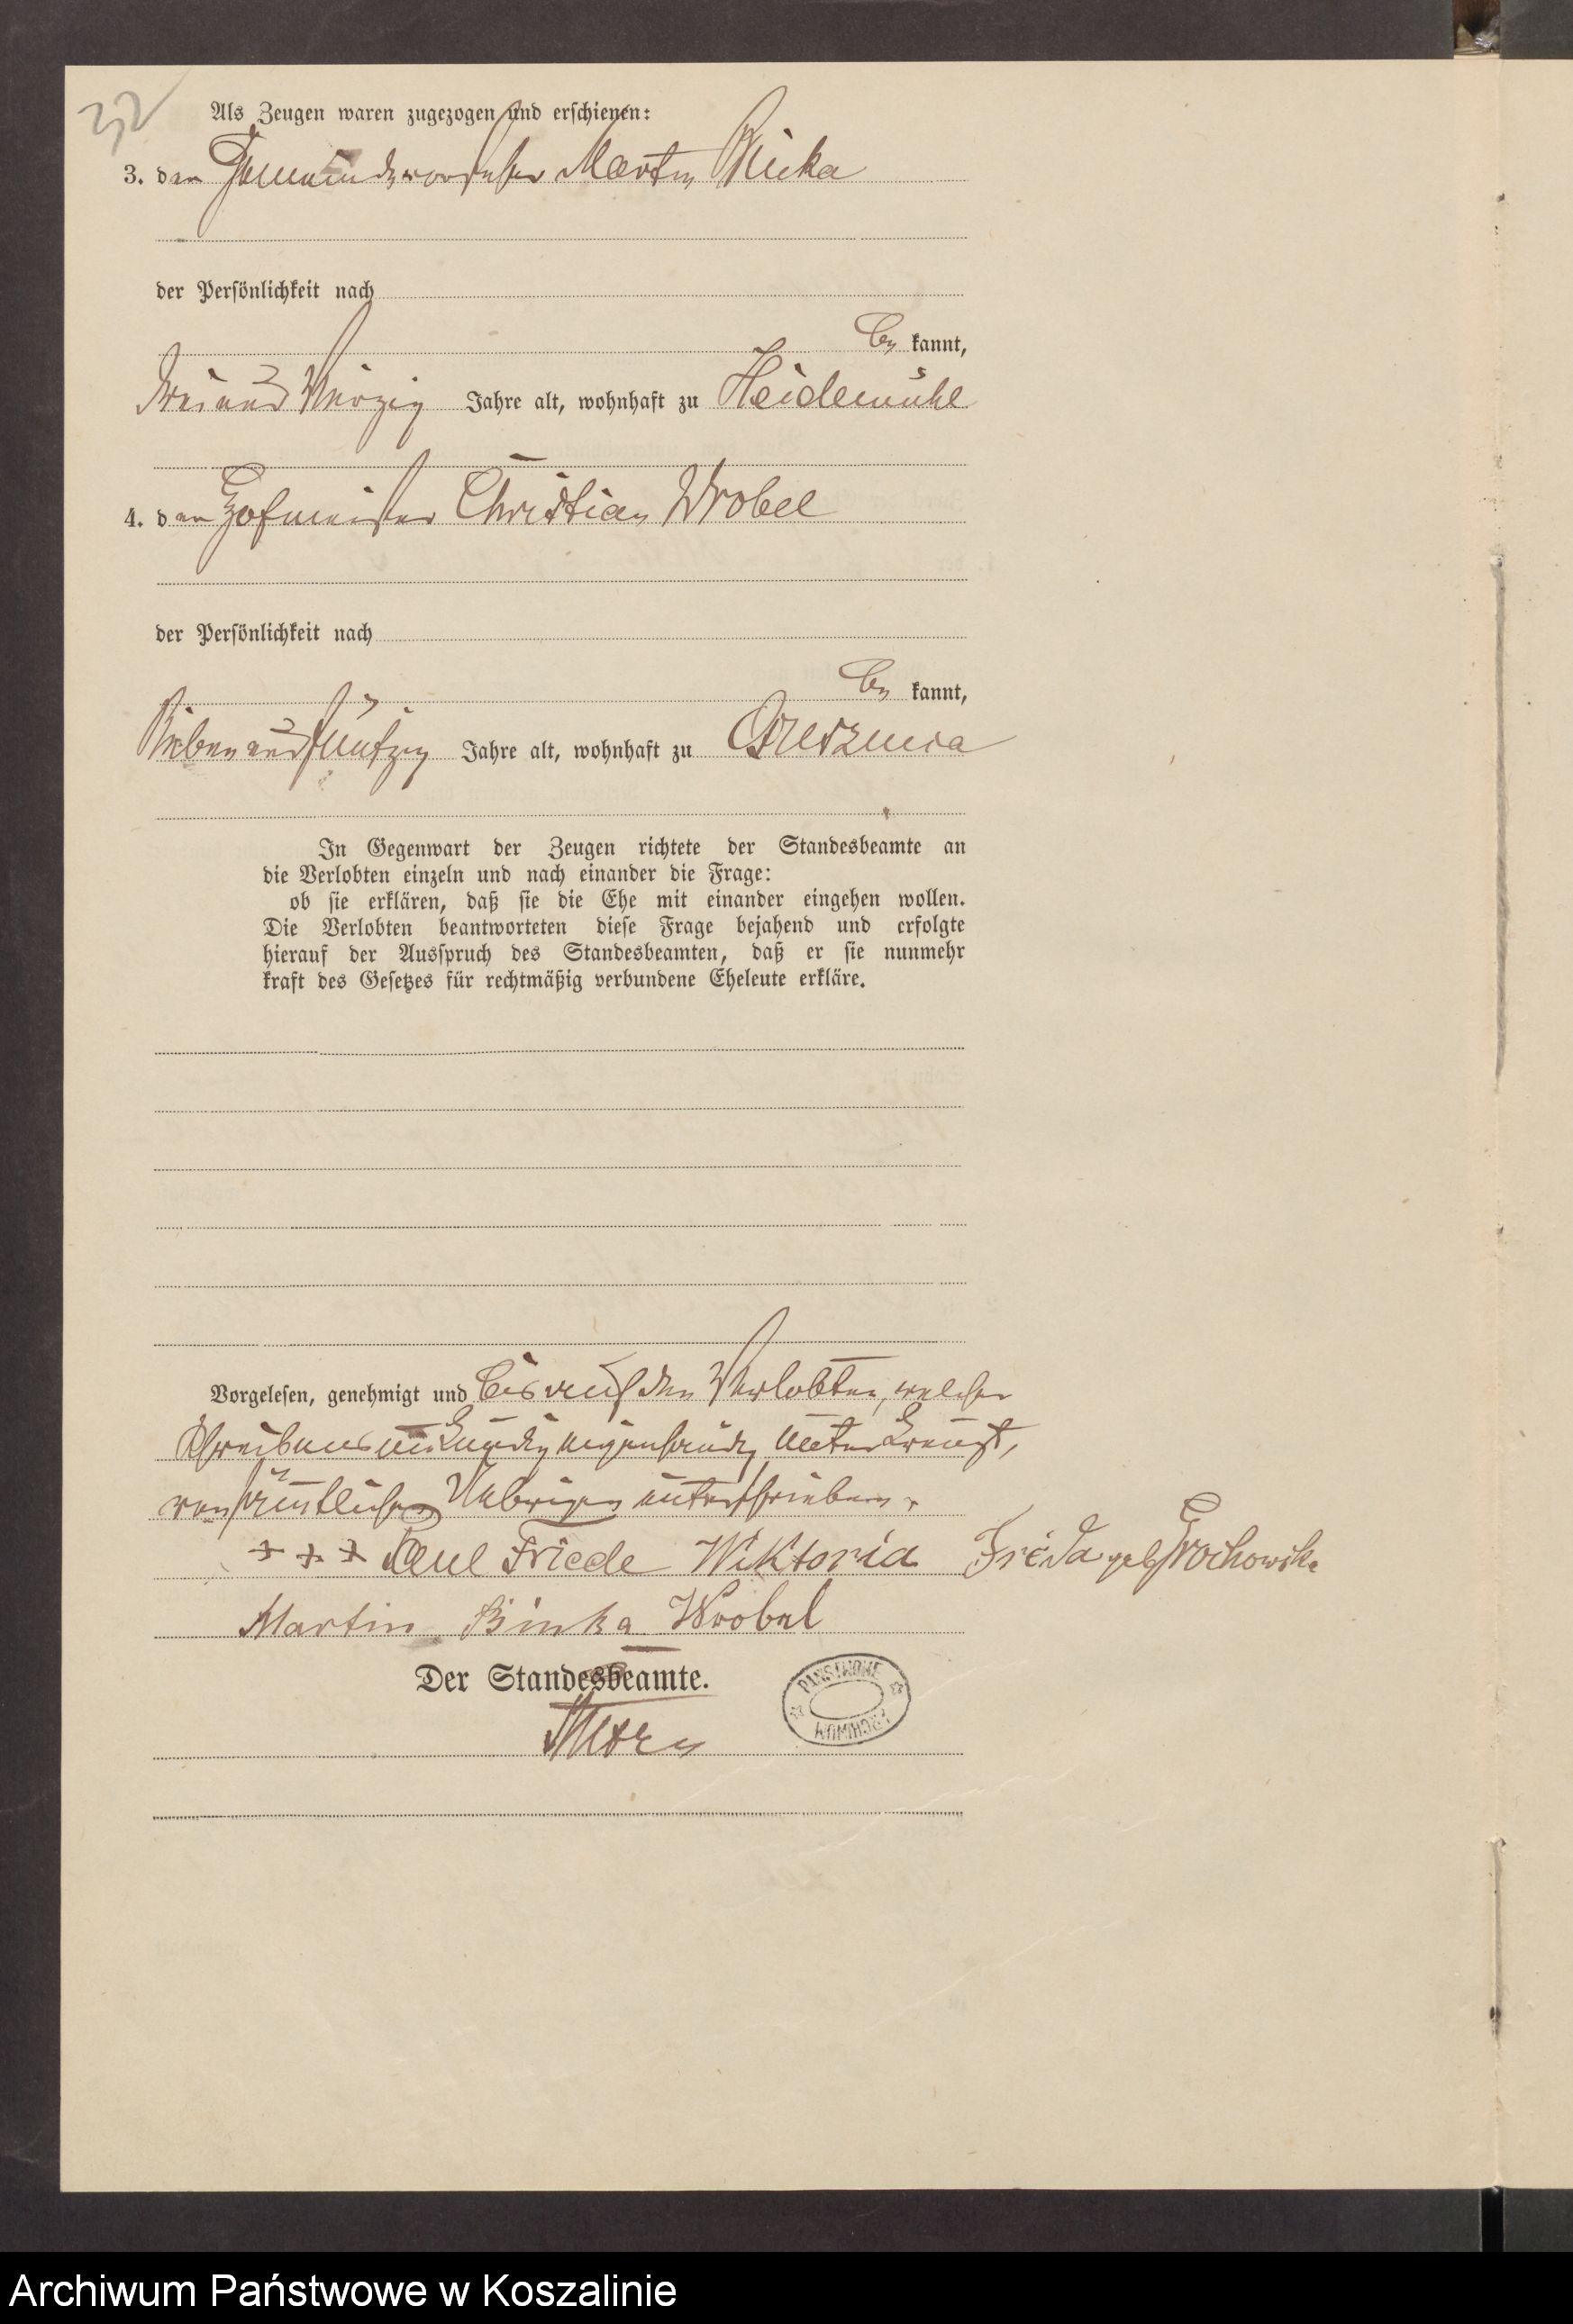 32
Als Zeugen waren zugezogen und erschienen:
3. den Gemeindevorsteher Martin Binka
der Persönlichkeit nach
be kannt,
drei und vierzig Jahre alt, wohnhaft zu Heidemühl
4. den Hofmeister Christian Wrobel
der Persönlichkeit nach
be kannt,
sieben und fünfzig Jahre alt, wohnhaft zu
In Gegenwart der Zeugen richtete der Standesbeamte an
die Verlobten einzeln und nach einander die Frage:
ob sie erklären, daß sie die Ehe mit einander eingehen wollen.
Die Verlobten beantworteten diese Frage bejahend und erfolgte
hierauf der Ausspruch des Standesbeamten, daß er sie nunmehr
kraft des Gesetzes für rechtmäßig verbundene Eheleute erkläre.
Vorgelesen, genehmigt und bis auf den Verlobten, welcher
Schreibens unkundig eigenhändig unterkreuzt,
von sämtlichen Uebrigen unterschrieben.
+ + + Paul Friede Wiktoria Frida geb Grochowska
Martin Binka Wrobel
Der Standesbeamte.
PAŃSTWOWE ARCHIWUM
Archiwum Państwowe w Koszalinie